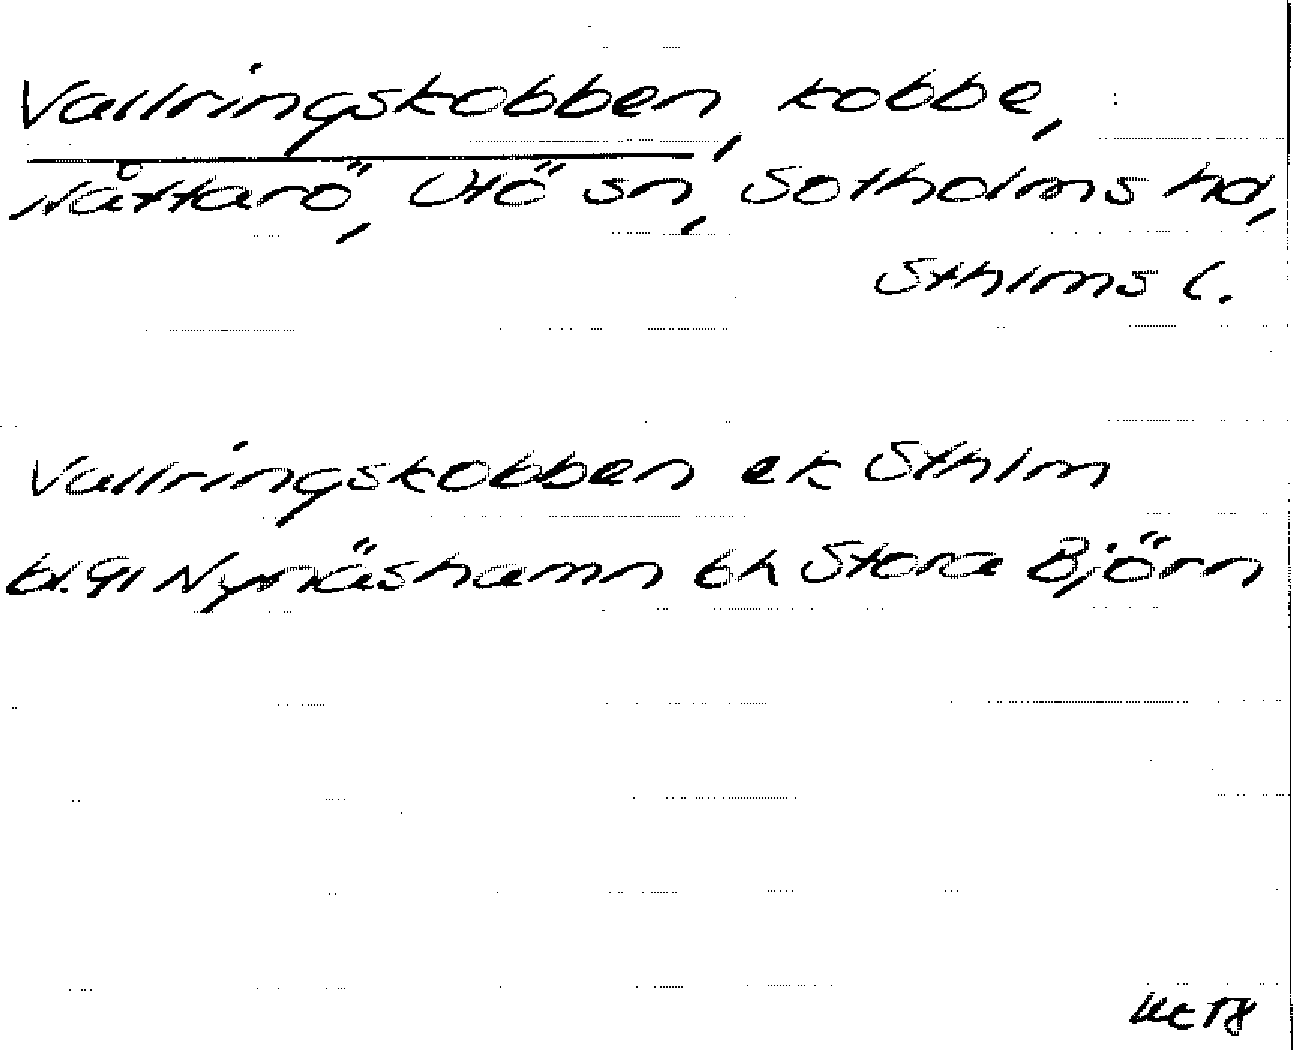 Vallringskobben, kobbe,
Nåttarö, Utö sn, Sotholms hd,
Sthlms l.
Vallringskobben ek Sthlm
bl. 91 Nynäshamn bh Stora Björn